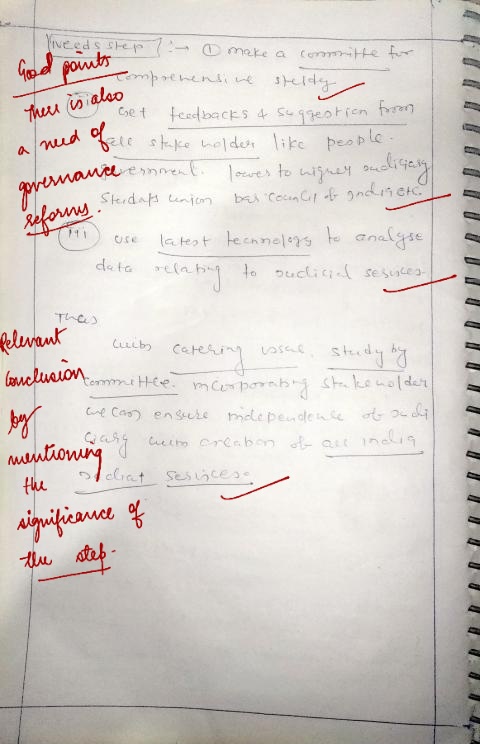 Needs step :→ ① make a committe for
comprehensive study
Good points
There is also
a need of
governance
reforms.
(ii) Get feedbacks & suggestion from
all stake holder like people.
Government. lower to higher Judiciary
Students union bar council of India etc.
(iii) use latest technology to analyse
data relating to Judicial services.
Thus
with catering issue, study by
committee. incorporating stakeholder
we can ensure independence of Judi
ciary with creation of all india
services.
Relevant
conclusion
by
mentioning
the
significance of
the step.